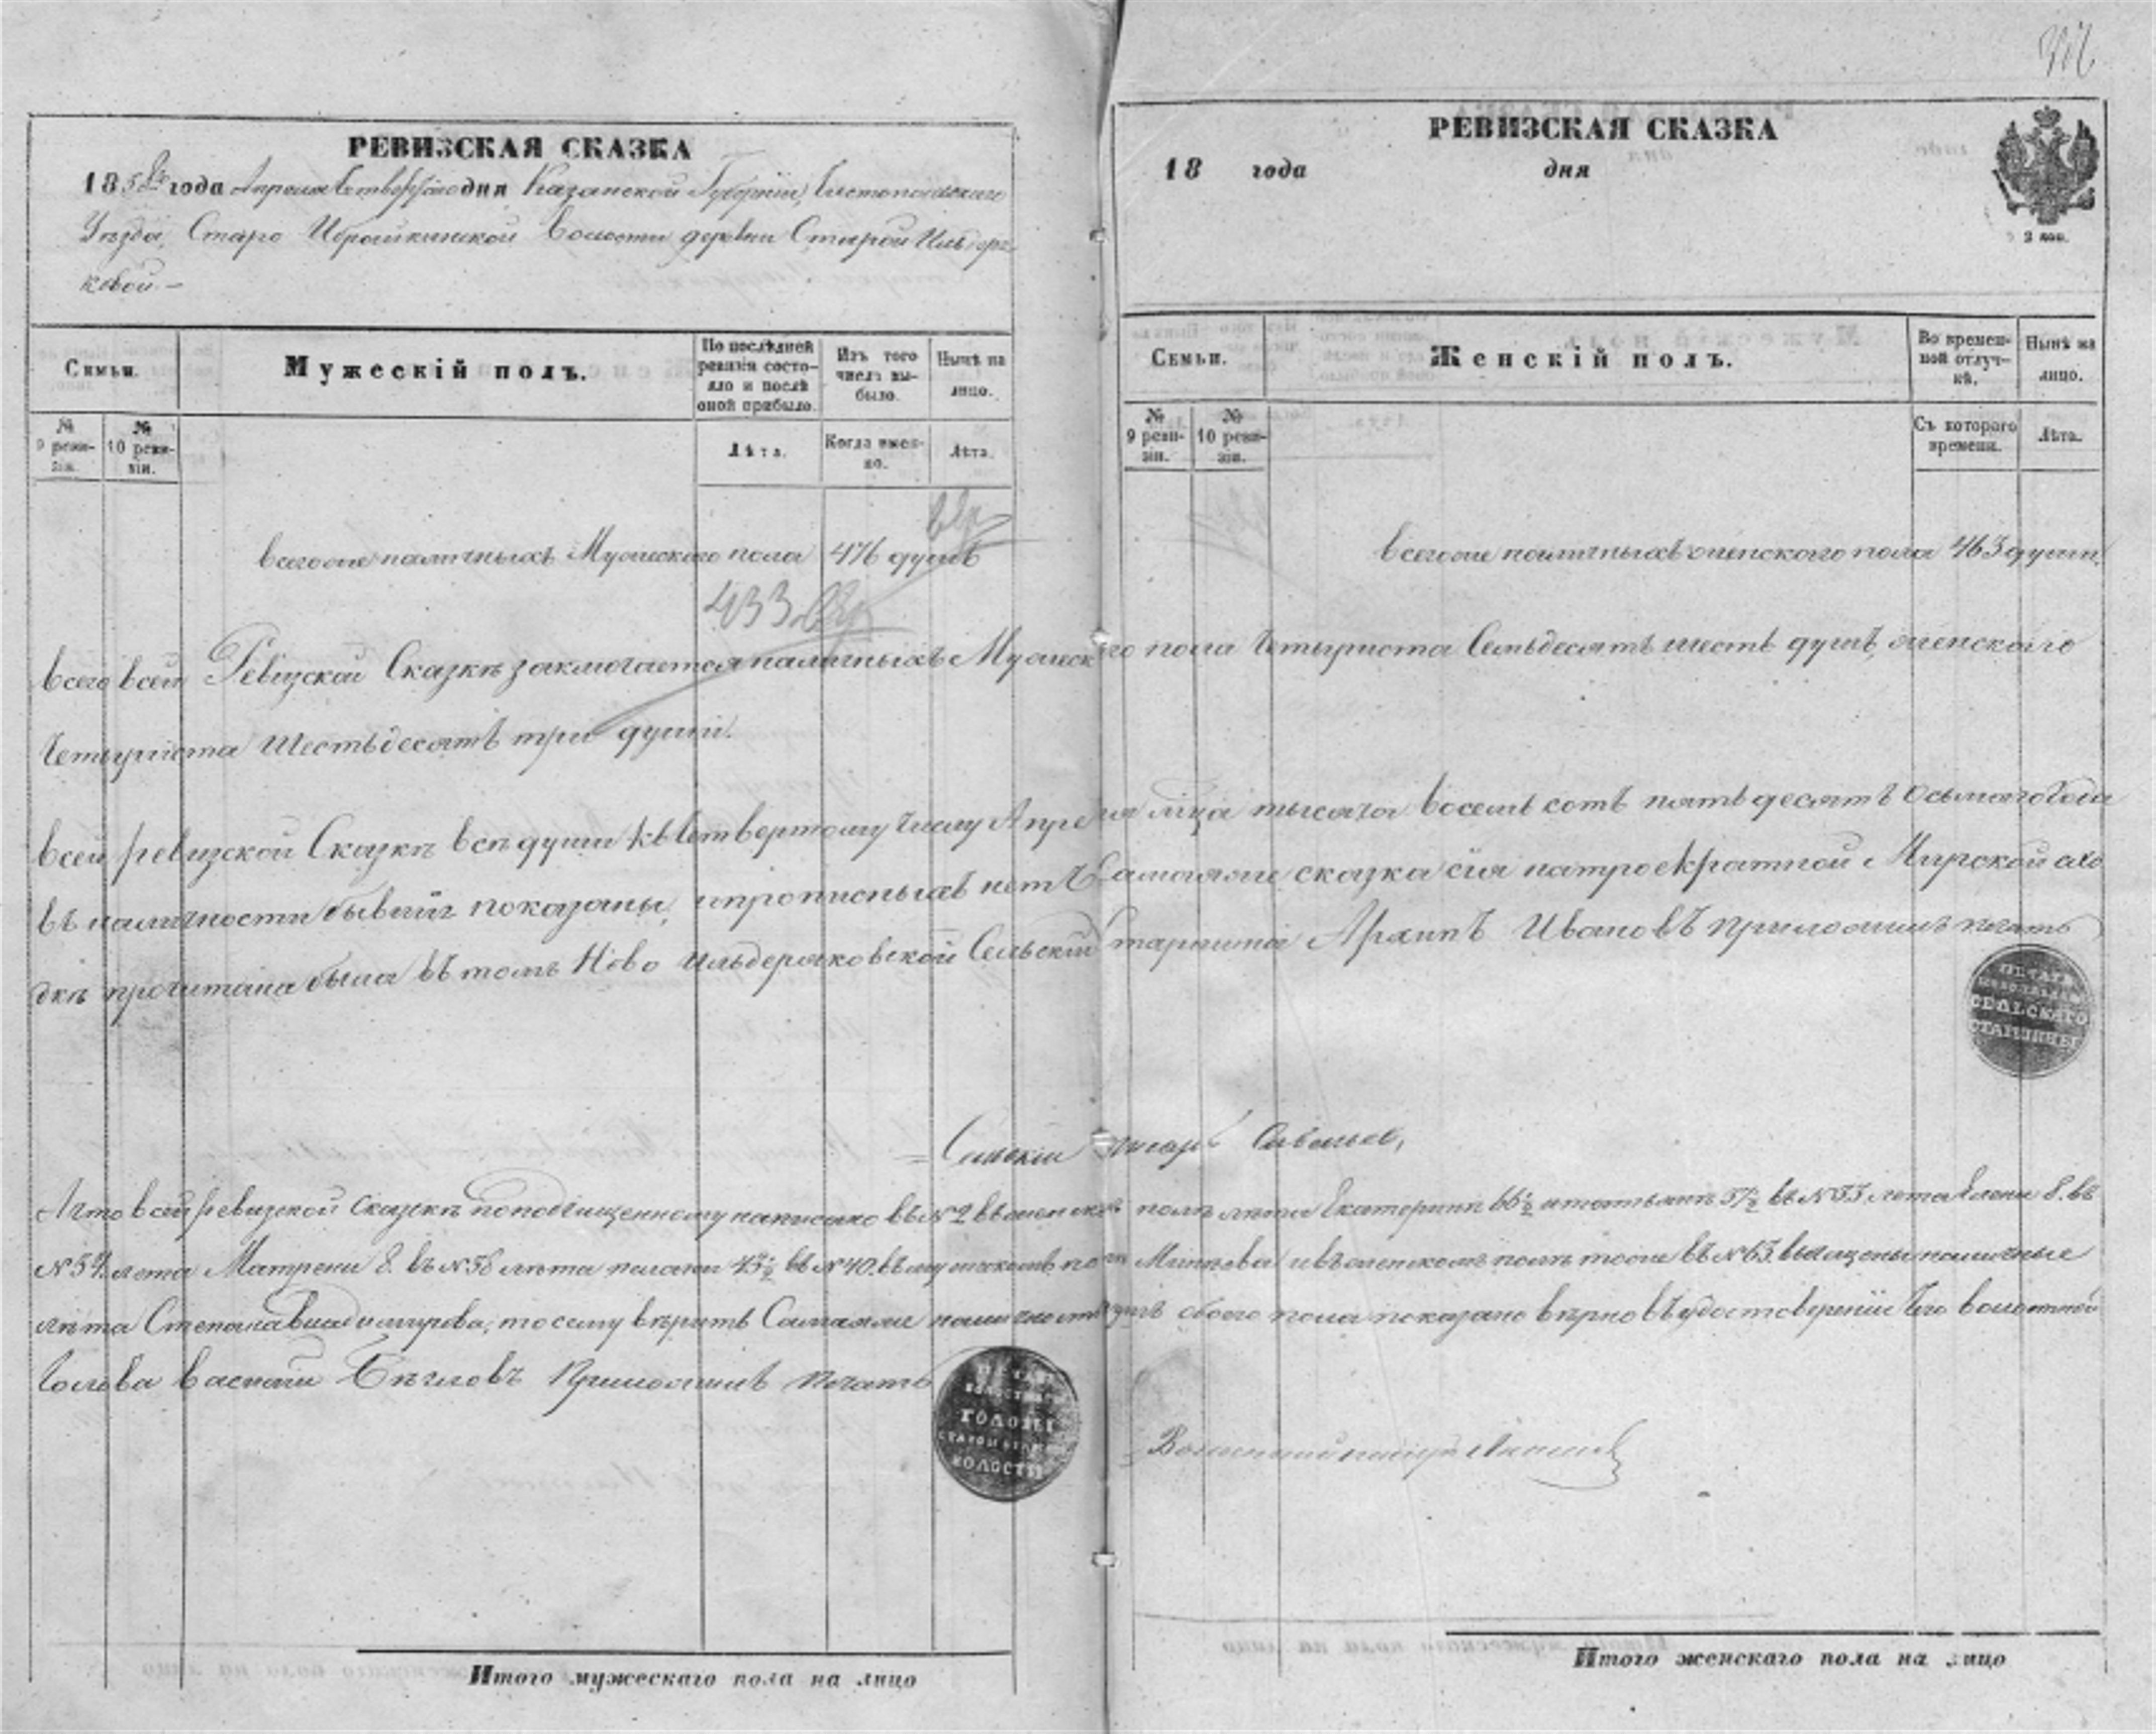 РЕВИЗСКАЯ СКАЗКА
1858го года Апреля Четвертаго дня Казанской Губерніи, Чистопольскаго
Уезда, Старо Ибрайкинской Волости деревни Старой Ильдеря
ковой. —
Семьи.
Мужескій полъ.
По послѣдней ревизіи состояло и послѣ оной прибыло.
Изъ того числа выбыло.
Нынѣ на лицо.
№ 9 ревизіи.
№ 10 ревизіи.
Лѣта.
Когда именно.
Лѣта.
всего же наличныхъ Мужескаго пола 476 душъ
433
РЕВИЗСКАЯ СКАЗКА
18 года дня
2 коп.
Семьи.
Женскій полъ.
Во временной отлучкѣ.
Нынѣ на лицо.
№ 9 ревизіи.
№ 10 ревизіи.
Съ котораго времени.
Лѣта.
всего же наличныхъ женского пола 463 души.
всего всей Ревизской Сказкѣ заключается наличныхъ Мужеского пола Четыриста Семьдесятъ шесть душъ, женского
Четыриста Шестьдесятъ три души.
Всей ревизской Сказкѣ всѣ души къ Четвертому числу Апреля мца тысяча восемь сотъ пятьдесятъ Осьмаго Года
въ наличности бывшіе показаны, и прописныхъ нетъ Самая же сказка сія на троекратной Мирской схо
дкѣ прочитана была въ томъ Ново Ильдеряковской Сельскій старшина Архипъ Ивановъ Приложилъ печать
ПЕЧАТЬ
СЕЛЬСКАГО
СТАРШИНЫ
Сельскій писарь Савельев,
А что в сей ревизской Сказкѣ по подчищенному написано въ №2 въ женскомъ полѣ лѣта Екатерины 66½ и татьяны 37½ въ №33 лета Елены 8. въ
№54. лета Матрены 8. въ №58 лѣта пелагеи 45½ въ №40. въ мужскомъ полѣ и въ женскомъ полѣ тоже въ №63. наличные
лѣта Степана Владимирова, то сему вѣрить Самая же наличность душъ обоего пола показано вѣрно въ удостовереніи Чего волостной
Голова Василій Бѣгловъ Приложилъ печать
ПЕЧАТЬ
ГОЛОВЫ
ВОЛОСТИ
Волостной писарь
Итого мужескаго пола на лицо
Итого женскаго пола на лицо